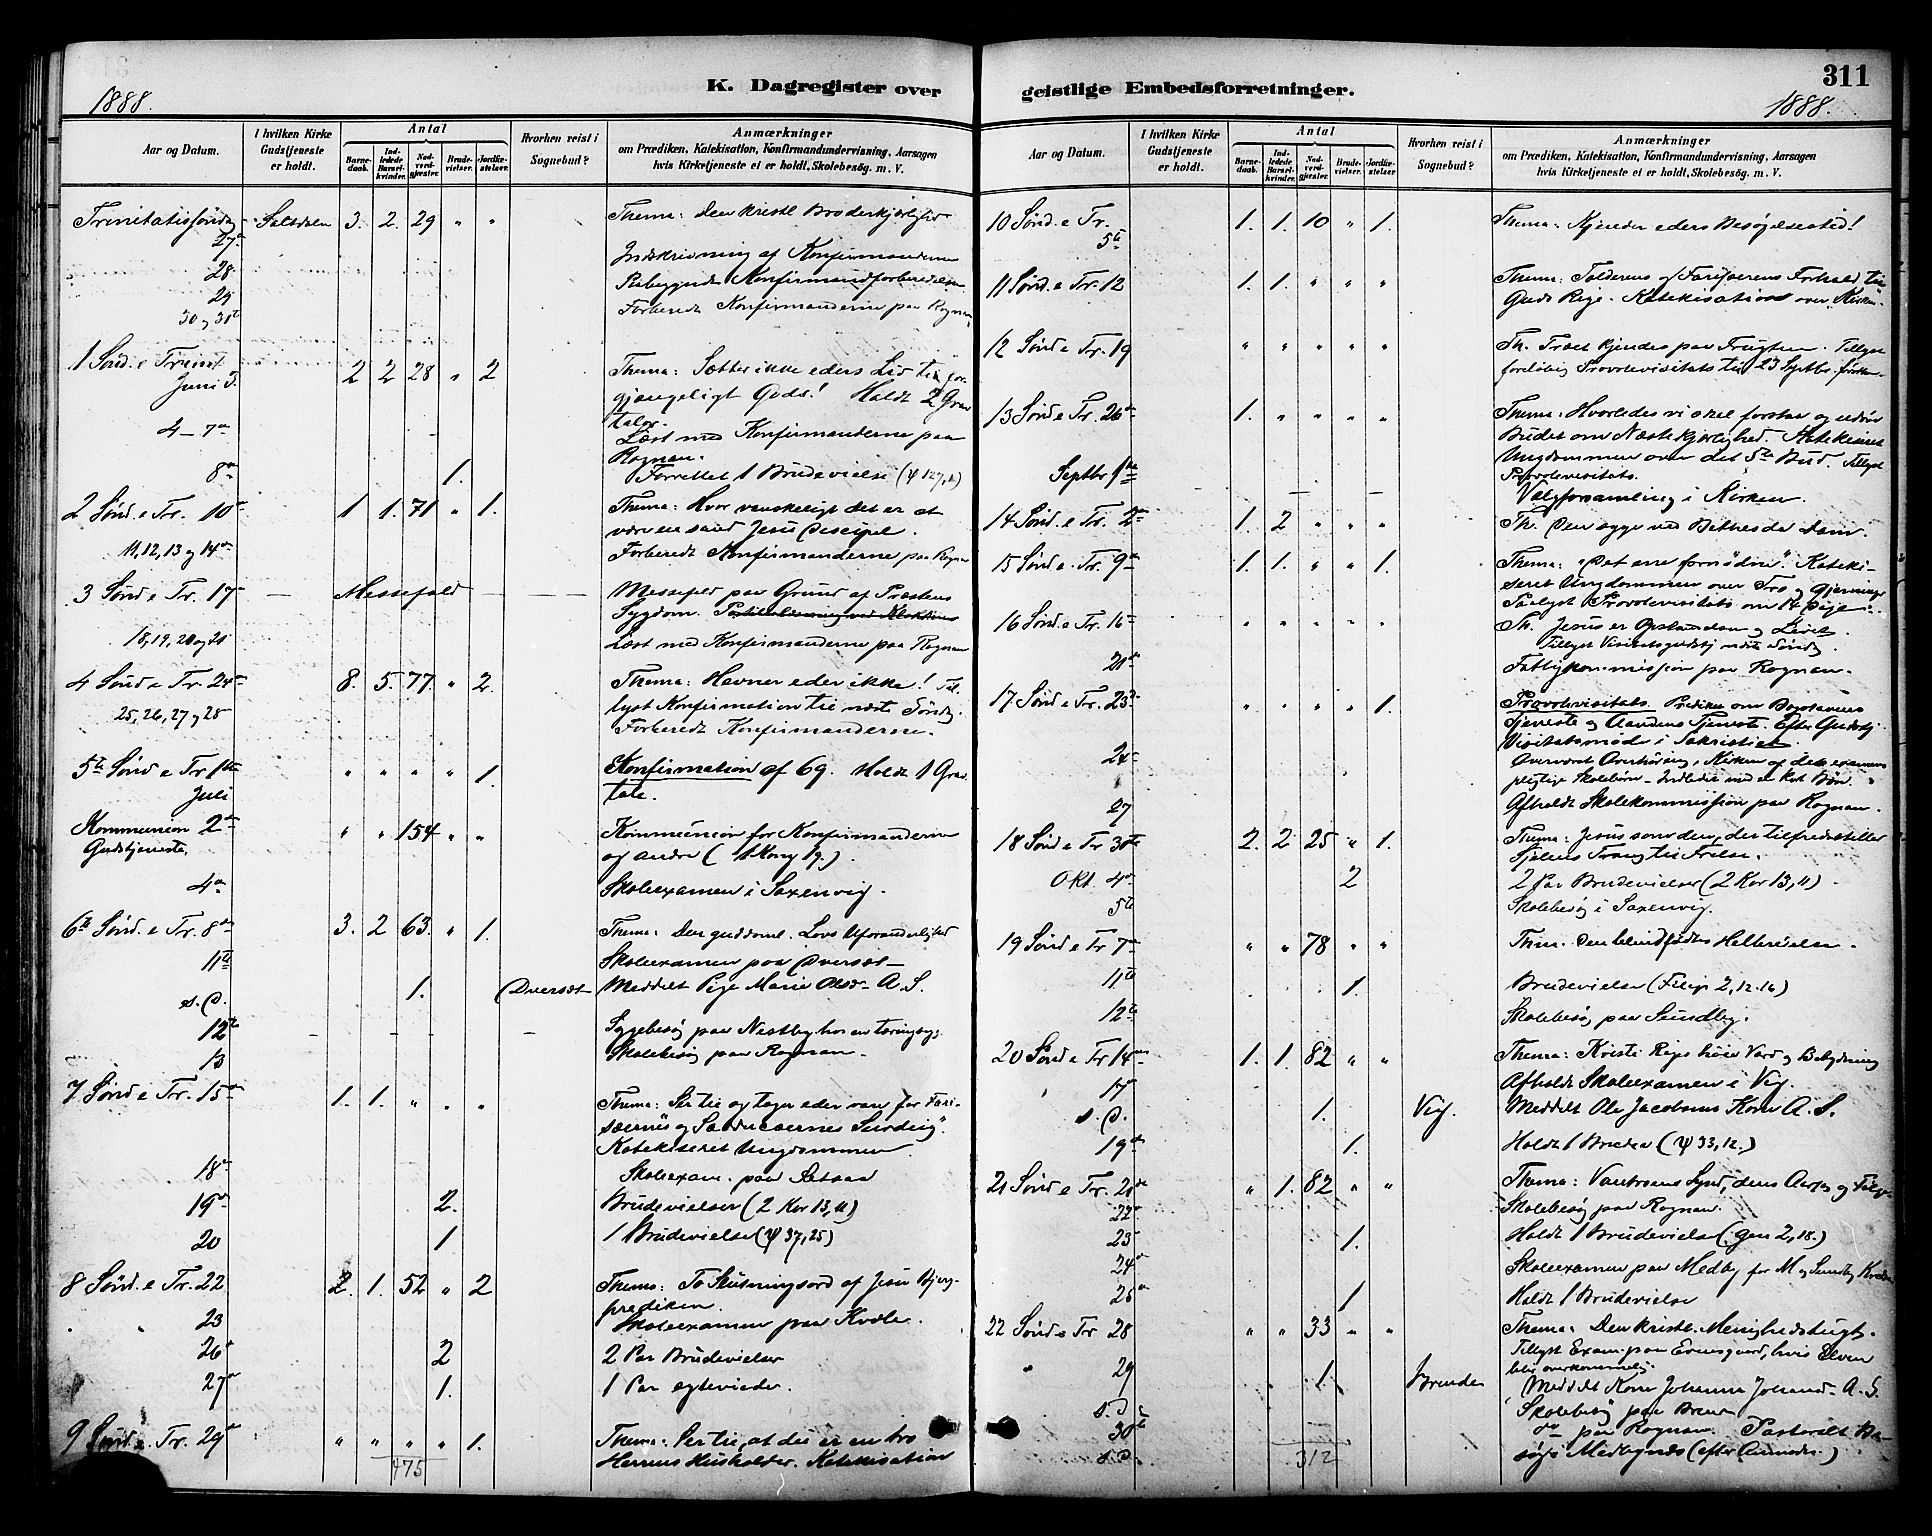 K. Dagregister over
1888.
Aar og Datum.
I hvilken Kirke Gudstjeneste er holdt.
Antal
Barnedaab.
Indledede Barselkvinder.
Nadverdgjæster.
Brudevielser.
Jordfæstelser.
Hvorhen reist i Sognebud?
Anmærkninger
om Prædiken, Katekisation, Konfirmandundervisning, Aarsagen
hvis Kirketjeneste ei er holdt, Skolebesøg. m. V.
Trinitatissøndag Saltdalen 3. 2. 29 " " Thema: Den kristl Broderkjærlighed
27de Indskrivning af Konfirmanderne
28 Paabegyndt Konfirmandforberedelsen
29 Forberedt Konfirmanderne paa Rognan
30 og 31te
1 Sønd. e Trinit 2 2 28 " 2 Thema: Sætter ikke eders Liv til for-
Juni 3. gjængeligt Gods! Holdt 2 Grav
taler.
4 - 7de Læst med Konfirmanderne paa
Rognan.
8de 1. Forrettet 1 Brudevielse (ψ 127,1)
2 Sønd. e Tr. 10de 1 1. 71 " 1. Thema: Hvor vanskeligt det er at
være en sand Jesu Discipel.
11, 12, 13 og 14de Forberedt Konfirmanderne paa Rognan
3 Sønd e Tr. 17 — Messefald — — Messefald paa Grund af Præstens
Sygdom.
18, 19, 20 og 21 Læst med Konfirmanderne paa Rognan
4 Sønd e Tr. 24de 8. 5. 77. " 2. Thema: Hevner eder ikke! Til-
25, 26, 27 og 28 lyst Konfirmation til næste Søndag.
Forberedt Konfirmanderne.
5te Sønd e Tr 1ste " " " " 1. Konfirmation af 69. Holdt 1 Grav
Juli tale.
Kommunion 2de " " 154 " " Kommunion for Konfirmanderne
Gudstjeneste. og andre (1 Kong 19.).
4de Skoleexamen i Saxenvig.
6te Sønd. e Tr. 8de 3. 2 63. " 1. Thema: Den guddoml. Lovs Uforanderlighed
11te Skoleexamen paa Dverset
s. D. 1. Dverset Meddelt Pige Marie Olsd. A. S.
12te — — — Sygebesøg paa Nestby hos en tæringssyg.
13 Skolebesøg paa Rognan.
7 Sønd e Tr. 15de 1. 1. " " " Thema: Ser til og tager eder vare for Fari-
sæernes og Sadducæernes Surdeig".
Katekiseret Ungdommen
18de Skoleexam. paa Setsaa
19de 2. Brudevielser (2 Kor 13, 11)
20 1 1 Brudevielse (ψ 37, 25)
8 Sønd. e Tr. 22 2. 1. 52 " 2 Thema: To Slutningsord af Jesu Bjerg-
prædiken.
23 Skoleexamen paa Kvæle.
26de 2 2 Par Brudevielser
27de 1. 1 Par egteviede.
9 Sønd. e. Tr. 29de " " " " 1. Thema: Ser til, at du er en tro
Herrens Husholder. Katekisation
475
geistlige Embedsforretninger.
311
1888.
Aar og Datum.
I hvilken Kirke Gudstjeneste er holdt.
Antal
Barnedaab.
Indledede Barselkvinder.
Nadverdgjæster.
Brudevielser.
Jordfæstelser.
Hvorhen reist i Sognebud?
Anmærkninger
om Prædiken, Katekisation, Konfirmandundervisning, Aarsagen
hvis Kirketjeneste ei er holdt, Skolebesøg. m. V.
10 Sønd e Tr. 1. 1. 10 " 1. Thema: Kjender eders Besøgelsestid!
5te
11 Sønd. e Tr. 12 1. 1. " " " Thema: Tolderens og Farisæerens Forhold til
Guds Rige. Katekisation over Kirken.
12 Sønd e Tr. 19 " " " " " Th. Træet kjendes paa Frugten. Tillyst
foreløbig Provstevisitats til 23 Septbr.
13 Sønd e Tr. 26de 1. " " " " Thema: Hvorledes vi skal forstaa og udøve
Budet om Næstekjærlighed. Katekiseret
Ungdommen over det 5te Bud. Tillyst
Provstevisitats.
Septbr 1ste — — Valgforsamling i Kirken.
14 Sønd. e Tr. 2den 1. 2 " " " Th. Den syge ved Bethesda Dam.
15 Sønd e. Tr. 9de 1. 1. " " 1. Thema: "Det ene fornødne". Kateki-
seret Ungdommen over Tro og Gjerninger
Paalyst Provstevisitats om 14 Dage.
16 Sønd. e Tr. 16de " " " " " Th. Jesus er Opstandelsen og Livet.
Tillyst Visitatsgudstj næste Søndag.
21de Fattigkommission paa Rognan.
17 Sønd e Tr. 23de " " " " 1. Provstevisitats. Prædiken om Bogstavens
Tjeneste og Aandens Tjeneste. Efter Gudstj
Visitatsmøde i Sakristiet.
24de Overværet Overhøring i Kirken af de examens
pligtige Skolebørn. Indledet med en kort Bøn.
27 Afholdt Skolekommission paa Rognan.
18 Sønd e Tr 30te 2. 2 25 " 1. Thema: Jesus som den, der tilfredsstiller
Sjælens Trang til Frelse.
Okt. 4de 2 2 Par Brudevielser (2 Kor 13, 11).
5te Skolebesøg i Saxenvig.
19 Sønd e Tr 7de " " 78 " " Thm. Den blindfødtes Helbredelse.
11te 1. Brudevielse (Filip 2, 12-16)
12te Skolebesøg paa Sundby.
20 Sønd e Tr 14de 1. 1. 82 " " Thema: Kristi Riges høie Værd og Betydning
17 Afholdt Skoleexamen i Vig.
s. D. 1. Vig. Meddelt Ole Jacobsens Kone A. S.
19de 1. Holdt 1 Brudev (ψ 33, 12.)
21 Sønd e Tr. 21de " 1. 82 " " Thema: Vantroens Synd, dens Aarsag og Følger
22de Skolebesøg paa Rognan.
23 1. Holdt 1 Brudevielse (gen 2, 18.)
24de Skoleexamen paa Medby for M og Sundby Kreds
25de 1 Holdt 1 Brudevielse
22 Sønd e Tr 28 " " 33 " " Thema: Den kristl. Menighedstugt.
Tillyst Exam. paa Evensgaard, hvis Elven
blir overkommelig.
" 29 1 Brende Meddelt Kone Johanna Johansd. A. S.
s. D. Skolebesøg paa Brenne
30te do paa Rognan. Pastoralt Be-
s. D. søg i Medbynes
312